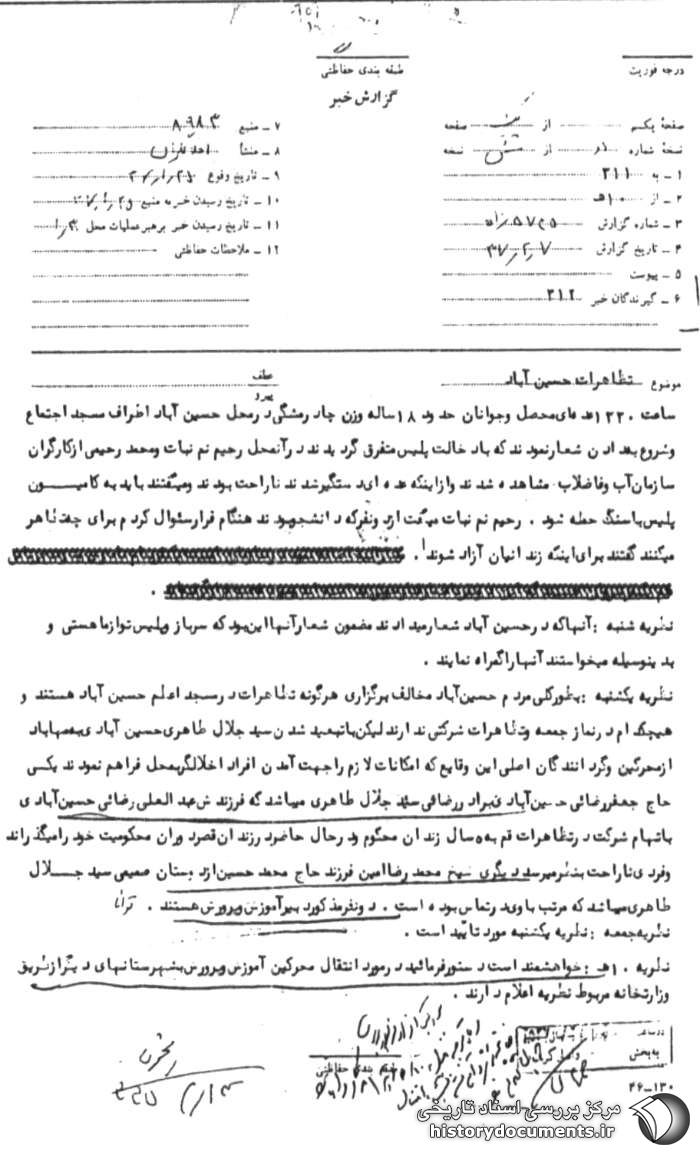 درجه فوریت
طبقه بندی حفاظتی
گزارش خبر
صفحهٔ یکم از یک صفحه
نسخهٔ شماره ۱ از شش نسخه
۱ ـ به ۳۱۱
۲ ـ از ۱۰ هـ
۳ ـ شماره گزارش ۵۷۲۵
۴ ـ تاریخ گزارش ۳۷٫۲٫۷
۵ ـ پیوست
۶ ـ گیرندگان خبر ۳۱۲
۷ ـ منبع ۸۹۸۳
۸ ـ منشأ
۹ ـ تاریخ وقوع
۱۰ ـ تاریخ رسیدن خبر به منبع
۱۱ ـ تاریخ رسیدن خبر برهبر عملیات محل
۱۲ ـ ملاحظات حفاظتی
موضوع تظاهرات حسین آباد
عطف
پیرو
ساعت ۱۲۲۰ عده ای محصل و جوانان حدود ۱۸ ساله وزن چادر مشگی در محل حسین آباد اطراف مسجد اجتماع
و شروع بدادن شعار نمودند که با دخالت پلیس متفرق گردیدند در آنمحل رحیم نم نبات و محمد رحیمی از کارگران
سازمان آب و فاضلاب مشاهده شدند و از اینکه عده ای دستگیر شدند ناراحت بودند و میگفتند باید به کامیسون
پلیس با سنگ حمله شود . رحیم نم نبات میگفت از دونفر که دانشجو بودند هنگام فرار سئوال کردم برای چه تظاهر
میکنند گفتند برای اینکه زندانیان آزاد شوند .
نظریه شنبه : آنهاکه در حسین آباد شعار میدادند مضمون شعار آنها این بود که سرباز و پلیس تو از ما هستی و
بدینوسیله میخواستند آنها را گمراه نمایند .
نظریه یکشنبه : بطورکلی مردم حسین آباد مخالف برگزاری هرگونه تظاهرات در مسجد اعلم حسین آباد هستند و
هیچکدام در نماز جمعه و تظاهرات شرکتی ندارند لیکن با تبعید شدن سید جلال طاهری حسین آبادی به مهاباد
از محرکین و گردانندگان اصلی این وقایع که امکانات لازم را جهت آمدن افراد اخلالگر بمحل فراهم نمودند یکی
حاج جعفر رضائی حسین آبادی برادر رضاعی سید جلال طاهری میباشد که فرزندش عبدالعلی رضائی حسین آبادی
باتهام شرکت در تظاهرات قم به ۵ سال زندان محکوم و در حال حاضر در زندان قصر دوران محکومیت خود را میگذراند
و فردی ناراحت بنظر میرسد دیگری شیخ محمد رضا امین فرزند حاج محمد حسین از دوستان صمیمی سید جلال
طاهری میباشد که مرتب با وی در تماس بوده است . دو نفر مذکور دبیر آموزش و پرورش هستند .
نظریه جمعه : نظریه یکشنبه مورد تایید است .
نظریه ۱۰ هـ : خواهشمند است دستور فرمائید در مورد انتقال محرکین آموزش و پرورش بشهرستانهای دیگر از طریق
وزارتخانه مربوط نظریه اعلام دارند .
طبقه بندی حفاظتی
۱۳۰-۴۶
مرکز بررسی اسناد تاریخی
historydocuments.ir